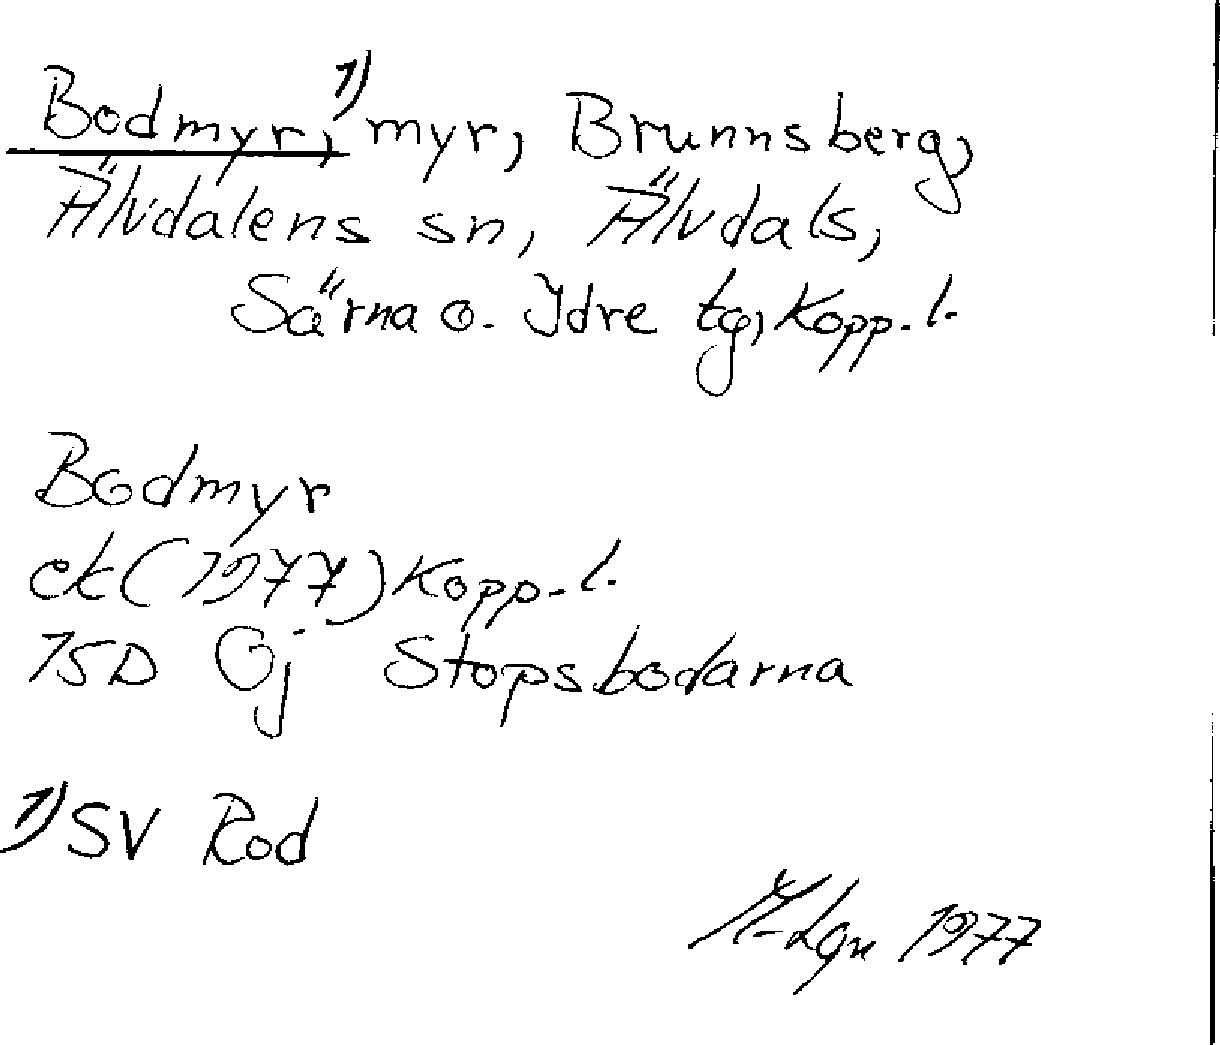 Bodmyr,¹⁾ myr, Brunnsberg,
Älvdalens sn, Älvdals,
Särna o. Idre tg, Kopp. l.
Bodmyr
ek (1977) Kopp. l.
15D Gj Stopsbodarna
¹⁾ SV Rod
1977